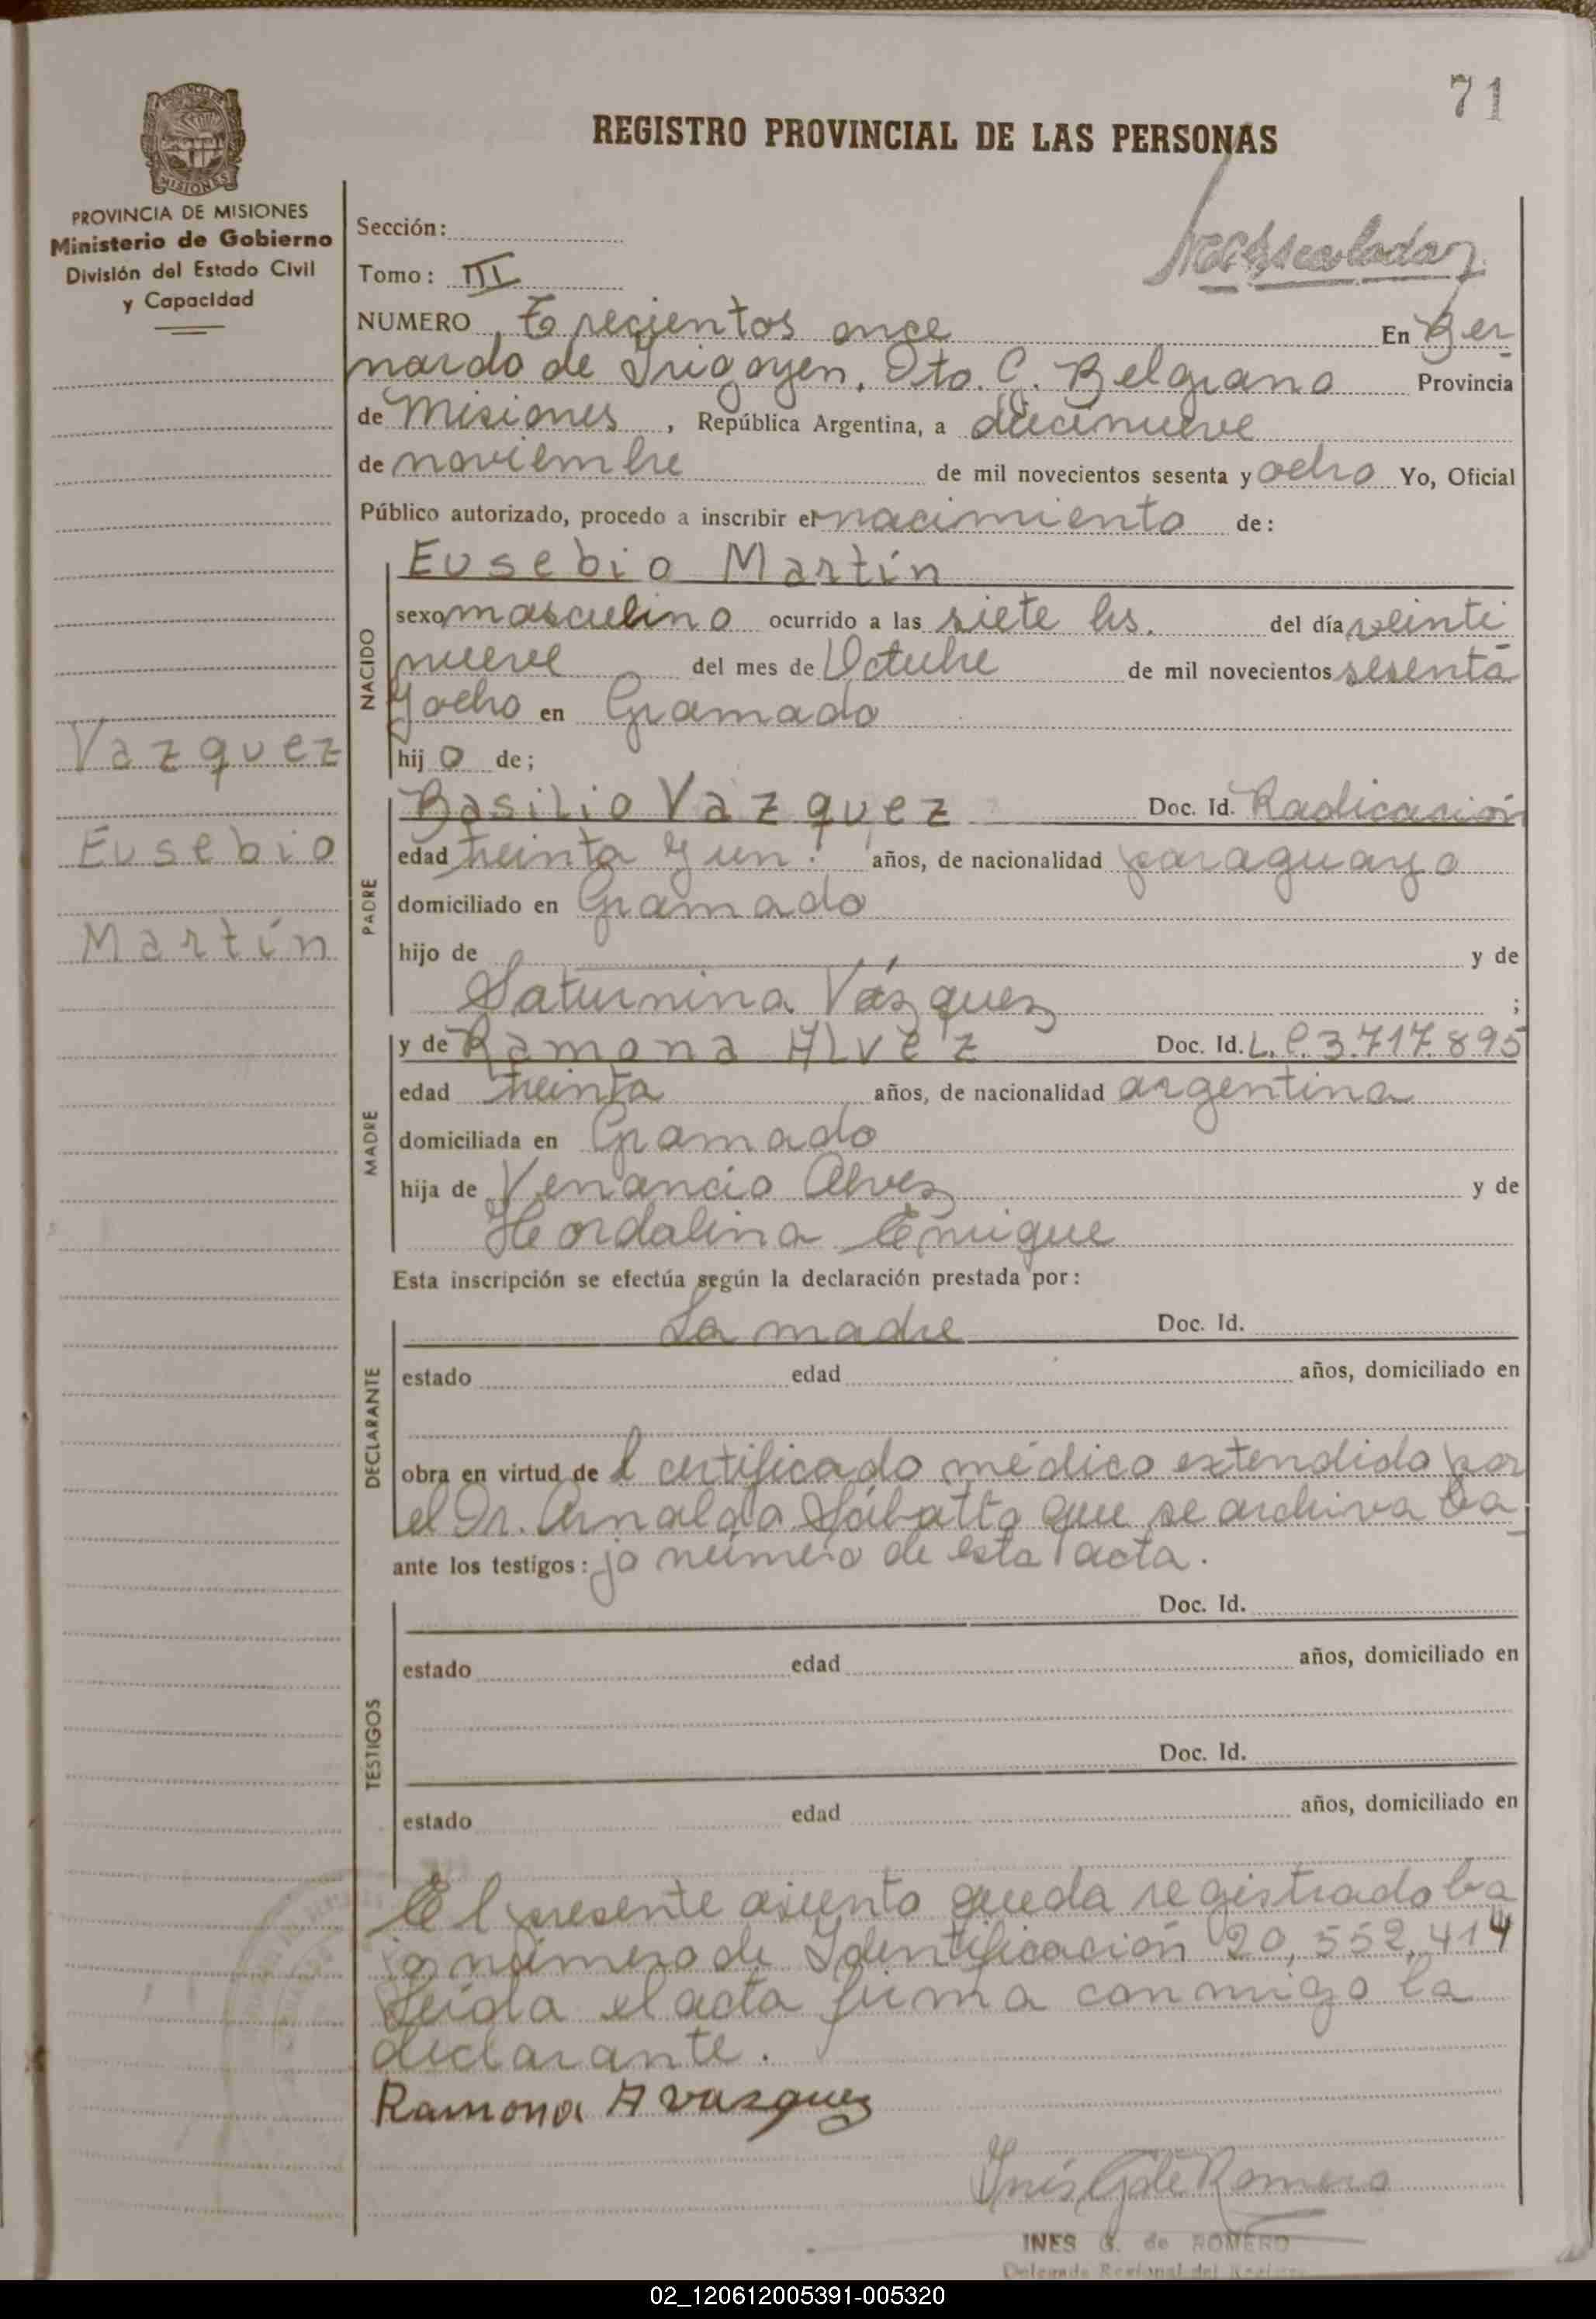 71
REGISTRO PROVINCIAL DE LAS PERSONAS
PROVINCIA DE MISIONES
Ministerio de Gobierno
División del Estado Civil
y Capacidad
Sección:
Tomo: III
NUMERO Trecientos once En Ber
nardo de Irigoyen, Dto. G. Belgrano Provincia
de Misiones, República Argentina, a diecinueve
de noviembre de mil novecientos sesenta y ocho Yo, Oficial
Público autorizado, procedo a inscribir el nacimiento de:
NACIDO
Eusebio Martín
sexo masculino ocurrido a las siete hs. del día veinti
nueve del mes de Octubre de mil novecientos sesenta
y ocho en Gramado
hijo de;
Vazquez
Eusebio
Martín
PADRE
Basilio Vazquez Doc. Id. Radicación
edad treinta y un años, de nacionalidad paraguayo
domiciliado en Gramado
hijo de y de
Saturnina Vázquez ;
MADRE
y de Ramona Alvez Doc. Id. L. C. 3.717.895
edad treinta años, de nacionalidad argentina
domiciliada en Gramado
hija de Venancio Alvez y de
Hordalina Enrique
Esta inscripción se efectúa según la declaración prestada por:
DECLARANTE
La madre Doc. Id.
estado edad años, domiciliado en
obra en virtud de l certificado médico extendido por
el Dr. Arnaldo Sábatto que se archiva ba
ante los testigos: jo número de esta acta.
TESTIGOS
Doc. Id.
estado edad años, domiciliado en
Doc. Id.
estado edad años, domiciliado en
El presente asiento queda registrado ba
jo número de Identificación 20,552,414
Leída el acta firma conmigo la
declarante.
Ramona A vazquez
Inés G de Romero
INES G. de ROMERO
Delegada Regional del
02_120612005391-005320